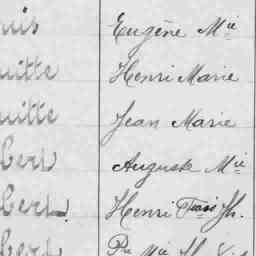 uis Eugène Mie
uitte Henri Marie
uitte Jean Marie
bert Auguste Mie
bert Henri Frçois Jh.
bert Pre Mie Jh